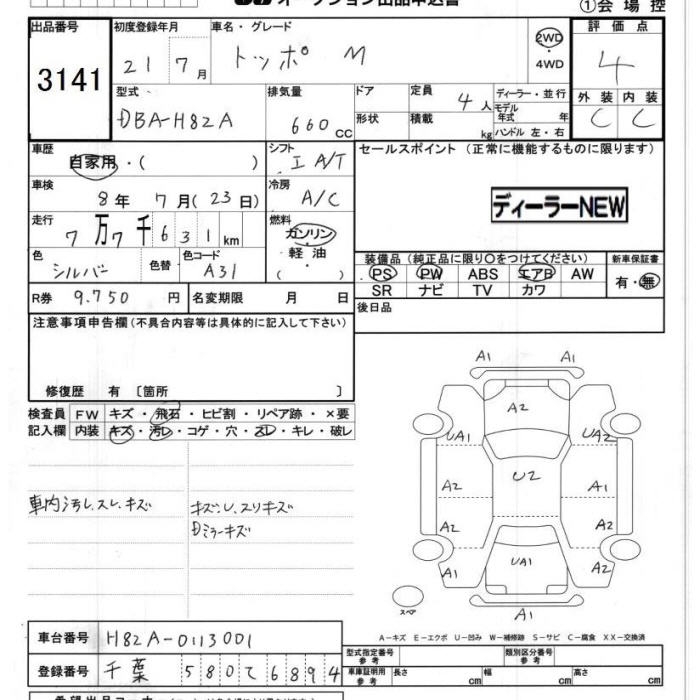 オークション出品申込書
①会場控
出品番号 初度登録年月 車名・グレード 評価点
3141 21 7月 トッポ M 2WD・4WD 4
型式 排気量 ドア 定員 ディーラー・並行 外装 内装
DBA-H82A 660cc 形状 積載 4人 kg モデル年式 年 ハンドル 左・右 C C
車歴 シフト セールスポイント (正常に機能するものに限ります)
自家用・( ) I A/T
車検 8年 7月(23日) 冷房 A/C
ディーラーNEW
走行 7万7千631km 燃料 ガソリン・軽油・( )
色 シルバー 色替 色コード A31
装備品(純正品に限り〇をつけてください) 新車保証書
PS PW ABS エアB AW 有・無
SR ナビ TV カワ
R券 9.750円 名変期限 月 日
後日品
注意事項申告欄(不具合内容等は具体的に記入して下さい)
修復歴 有 〔箇所 〕
検査員 FW キズ・飛石・ヒビ割・リペア跡・×要
記入欄 内装 キズ・汚レ・コゲ・穴・スレ・キレ・破レ
車内汚レ.スレ.キズ
キズ.U.スリキズ
Dミラーキズ
A1 A1
A2
UA1 UA2
U2
A2 A1
A2 A2
UA1
A1 A2
スペア
A1
A-キズ E-エクボ U-凹み W-補修跡 S-サビ C-腐食 XX-交換済
車台番号 H82A-0113001
型式指定番号 参考 類別区分番号 参考
登録番号 千葉580て6894
車庫証明用 参考 長さ cm 幅 cm 高さ cm
希望出品コーナー